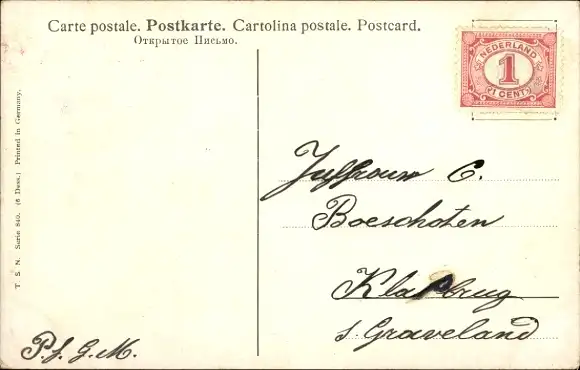 Carte postale. Postkarte. Cartolina postale. Postcard.
Открытое Письмо.
NEDERLAND
1
1 CENT
T. S. N. Serie 840. (6 Dess.) Printed in Germany.
Juffrouw C.
Boeschoten
Klapbrug
s. Graveland
P.f. G.M.